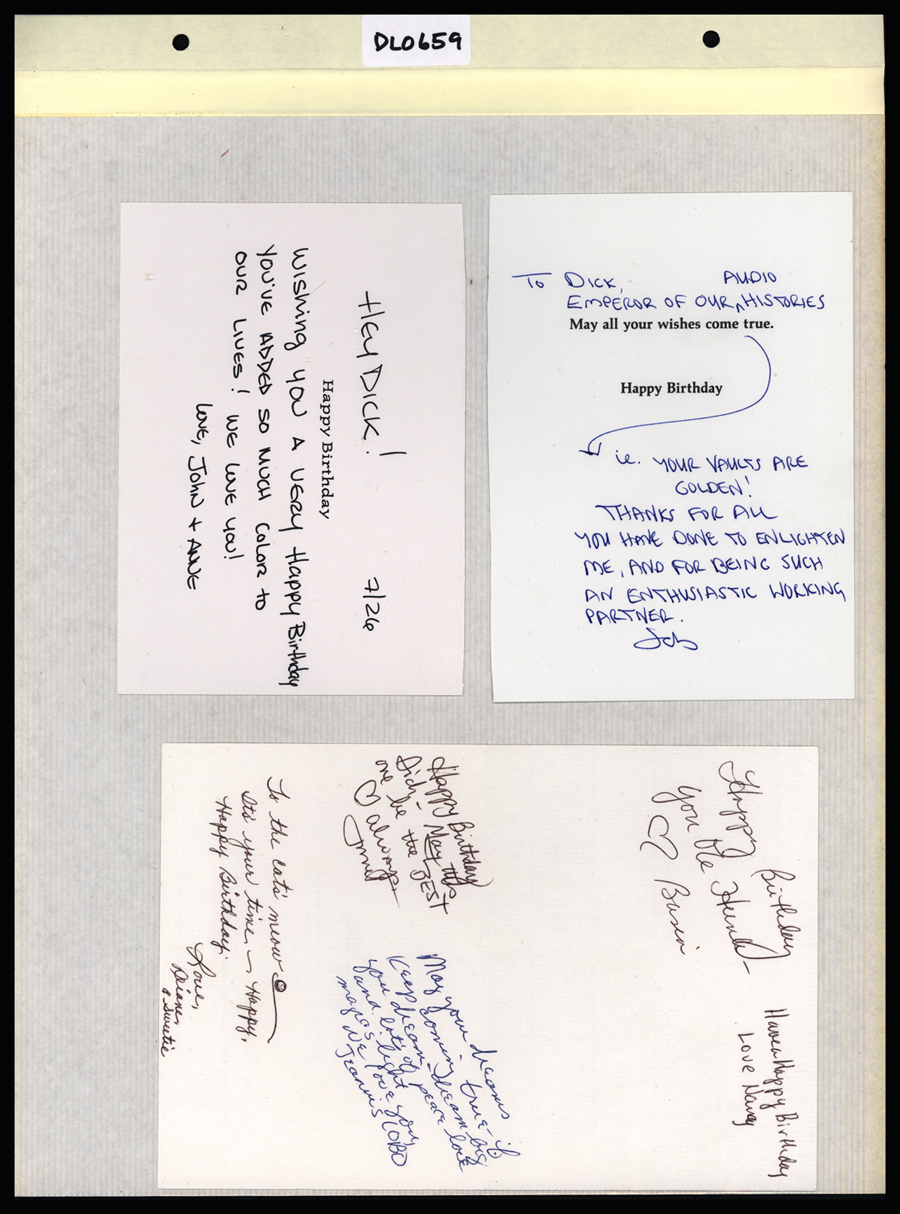 DL0659
HEY DICK! 7/26
Happy Birthday
WISHING YOU A VERY Happy Birthday
YOU'VE ADDED SO MUCH COLOR TO
OUR LIVES! WE LOVE YOU!
LOVE, JOHN + ANNE
TO DICK,
EMPEROR OF OUR AUDIO HISTORIES
May all your wishes come true.
Happy Birthday
i.e. YOUR VAULTS ARE
GOLDEN!
THANKS FOR ALL
YOU HAVE DONE TO ENLIGHTEN
ME, AND FOR BEING SUCH
AN ENTHUSIASTIC WORKING
PARTNER.
Happy Birthday
you Ole
♡
Have a Happy Birthday
Love Nancy
Happy Birthday
Dick – May this
one be the BEST
♡ always
May your dreams
coming true – if
keep dream – dream big
you lots of peace love
and light you
magic We love you
To the cats' meow
It's your time – Happy,
Happy Birthday.
Love,
Diane,
& Sweetie